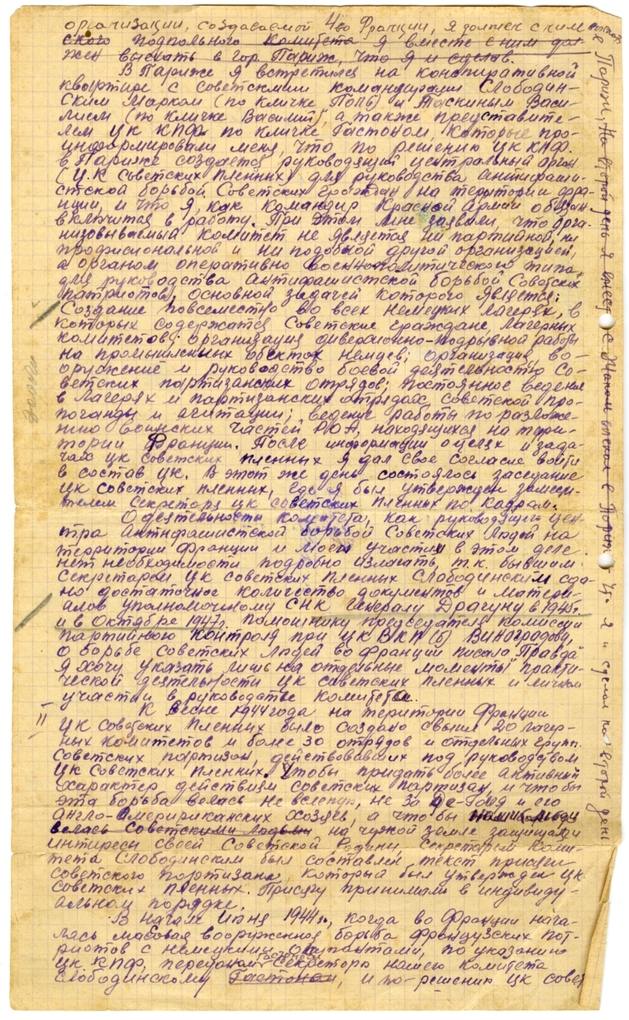 организации, создаваемой 4во Франции, я должен с ним
ского подпольного комитета я вместе с ним дол-
жен выехать в гор Париж, что я и сделал.
В Париже я встретился на конспиративной
квартире с советскими командирами Слободин-
ским Марком (по кличке Поль) и Таскиным Васи-
лием (по кличке Василий), а также представите-
лем ЦК КПФ по кличке Гастоном. Которые про-
информировали меня, что по решению ЦК КПФ
в Париже создается руководящий центральный орган
(Ц.К Советских пленных) для руководства антифаши-
стской борьбой Советских граждан на територии Фра-
нции и что я, как командир Красной Армии обязан
включится в работу. При этом мне заявили, что орга-
низовываемый комитет не является ни партийной, ни
профисиональной и ни подобной другой организацией,
а органом оперативно военнополитического типа,
для руководства антифашистской борьбой Советских
патриотов, основной задачей которого является:
Создание повсеместно во всех немецких лагерях, в
которых содержатся Советские граждане, лагерных
комитетов; организация диверсионно-подрывной работы
на промышленных обектах немцев; организация, во-
оружение и руководство боевой деятельностью Со-
ветских партизанских отрядов; постоянное ведение
в лагерях и партизанских отрядах советской про-
поганды и агитации; ведение работы по разложе-
нию воинских частей РОА, находящихся на тери-
тории Франции. После информации о целях и зада-
чах ЦК советских пленных я дал свое согласие войти
в состав ЦК. В этот же день состоялось заседание
ЦК советских пленных, где я был утвержден замести-
телем Секретаря ЦК советских пленных по кадрам.
О деятельности комитета, как руководящего цен-
тра антифашистской борьбой Советских Людей на
территории Франции и моем участии в этом деле
нет необходимости подробно излагать, т.к. бывшим
Секретарем ЦК советских пленных Слободинским сда-
но достаточное количество документов и матери-
алов уполномоченому СНК генералу Драгуну в 1945г.
и в Октябре 1947г. помошнику председателя комиссии
партийного контроля при ЦК ВКП(б) Виноградову,
о борьбе Советских Людей во Франции писала Правда
Я хочу указать лишь на отдельные моменты практи-
ческой деятельности ЦК советских пленных и личном
участии в руководстве комитета.
К весне 1944 года на територии Франции
ЦК советских пленных было создано свыше 20 лагер-
ных комитетов и более 30 отрядов и отдельных групп
советских партизан, действовавших под руководством
ЦК Советских пленных. Чтобы придать более активный
характер действиям советских партизан, и что бы
эта борьба велась не вслепую, не за де-Голя и его
англо-американских хозяев, а что бы
велась Советскими людьми на чужой земле защищали
интиресы своей Советской Родины Секретарем коми-
тета Слободинским был составлен текст присяги
советского партизана, который был утвержден ЦК
советских пленных. Присягу принимали в индивиду-
альном порядке.
В начале Июня 1944г, когда во Франции нача-
лась массовая вооруженная борьба французских пат-
риотов с немецкими окупантами, по указанию
Гастоном
ЦК КПФ, переданой Секретарю нашего комитета
Слободинскому Гастоном, и по решению ЦК совет
в Париже, На второй день я вместе с
я и сделал на второй день
II